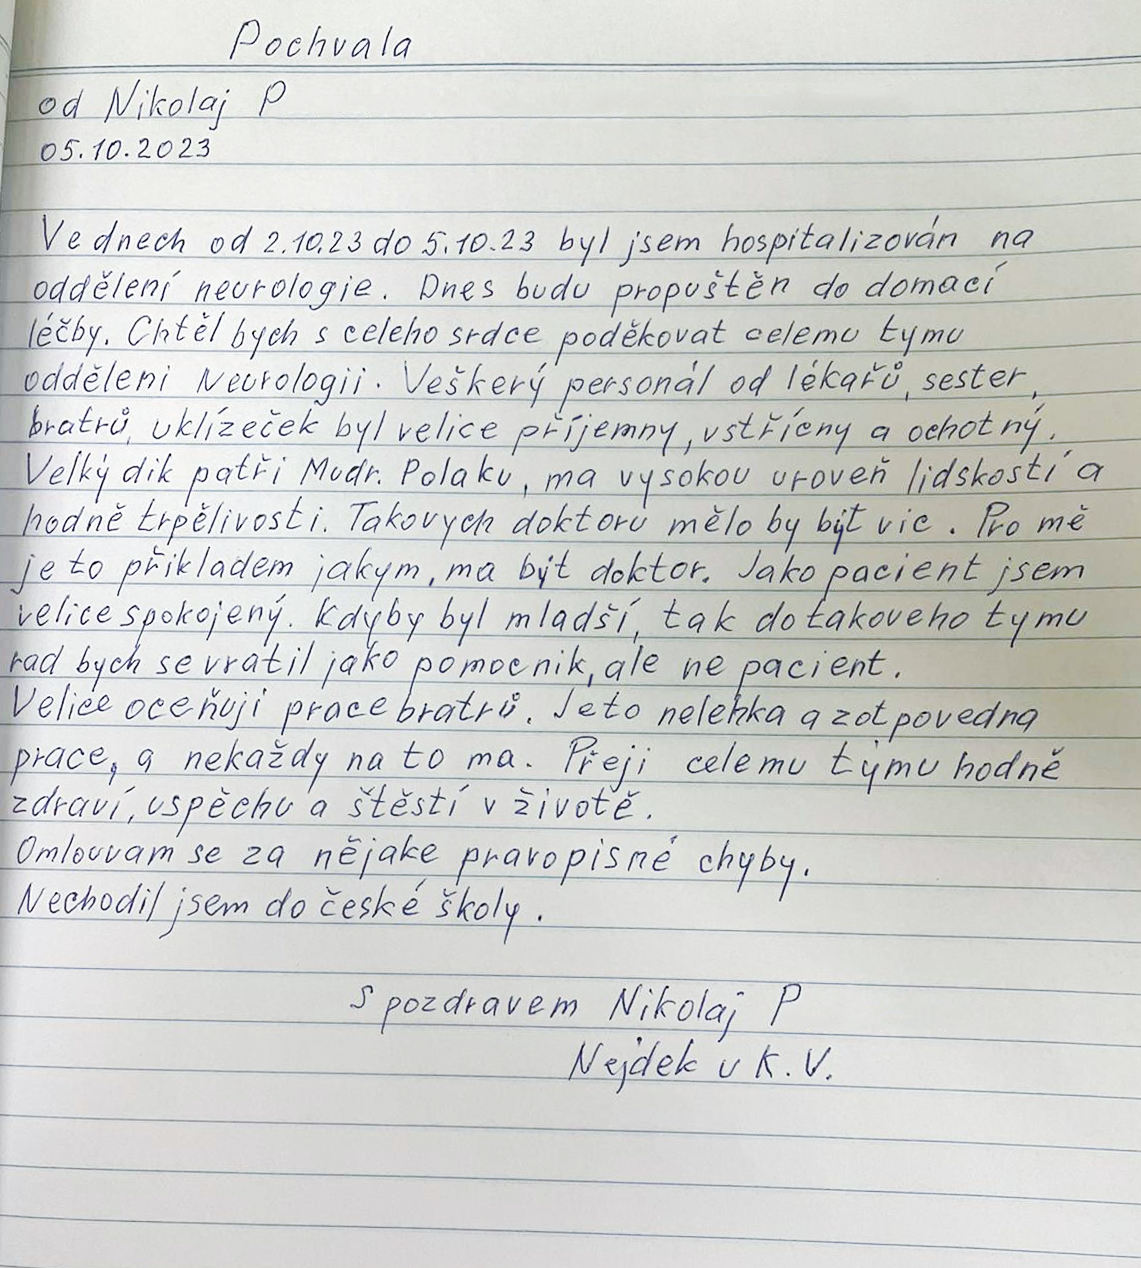 Pochvala
od Nikolaj P
05.10.2023
Ve dnech od 2.10.23 do 5.10.23 byl jsem hospitalizován na
oddělení neurologie. Dnes budu propuštěn do domací
léčby. Chtěl bych s celeho srdce poděkovat celemu tymu
odděleni Neurologii. Veškerý personál od lékařů, sester,
bratrů, uklízeček byl velice příjemny, vstřícny a ochotný.
Velký dik patři Mudr. Polaku, ma vysokou uroveň lidskostí a
hodně trpělivosti. Takovych doktoru mělo by být vic. Pro mě
je to přikladem jakym, ma být doktor. Jako pacient jsem
velice spokojený. Kdyby byl mladší, tak do takoveho tymu
rad bych se vratil jako pomocnik, ale ne pacient.
Velice oceňuji prace bratrů. Je to nelehka a zotpovedna
prace, a nekaždy na to ma. Přeji celemu týmu hodně
zdraví, uspěchu a štěstí v životě.
Omlouvam se za nějake pravopisné chyby.
Nechodil jsem do české školy.
S pozdravem Nikolaj P
Nejdek u K.V.